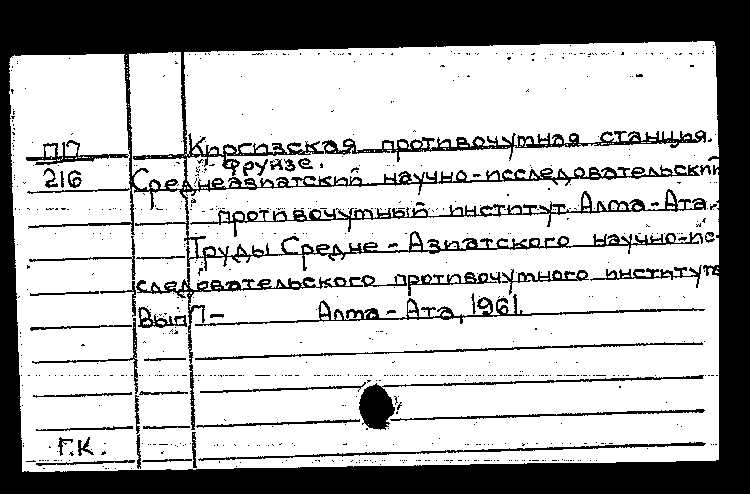 ПП Киргизская противочумная станция.
Фрунзе.
216 Среднеазиатский научно-исследовательский
противочумный институт. Алма-Ата.
Труды Средне-Азиатского научно-ис-
следовательского противочумного института
Вып – Алма-Ата, 1961.
Г.К.